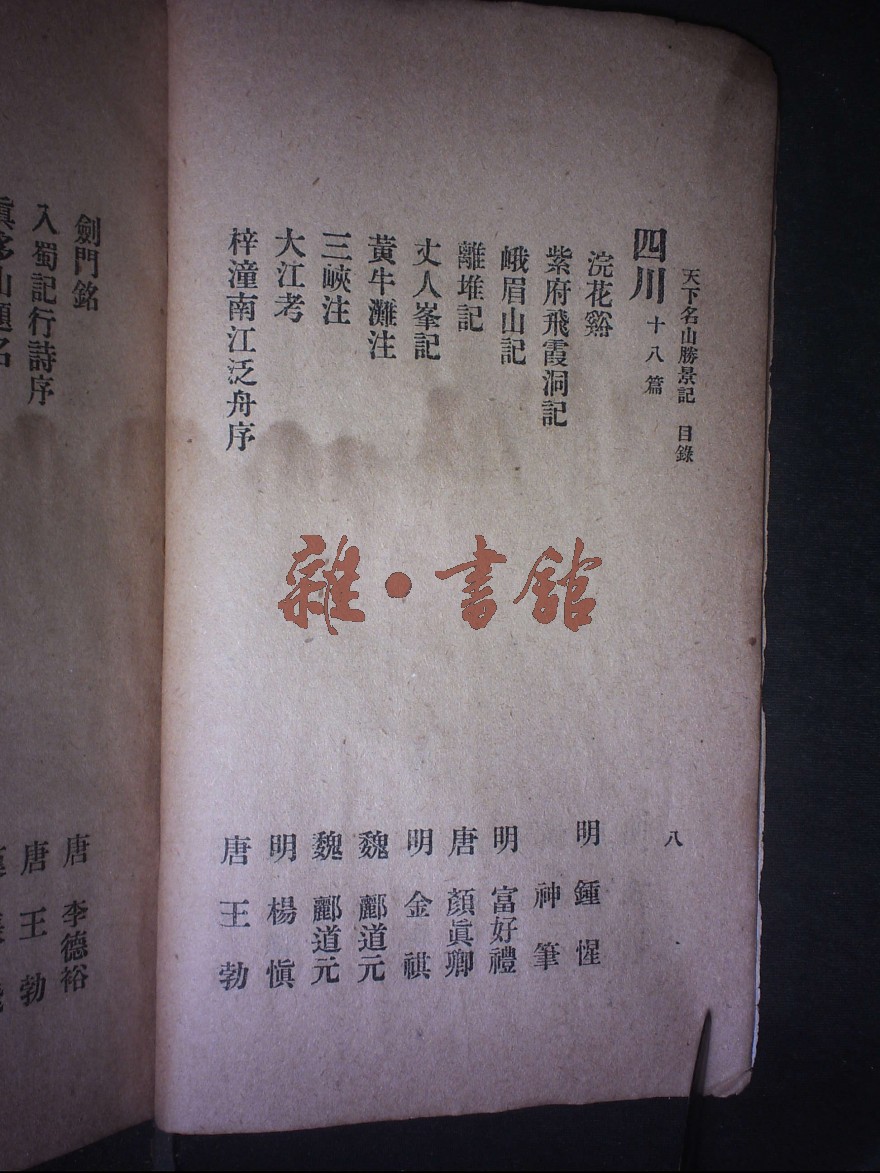 天下名山勝景記 目錄 八
四川 十八篇
浣花谿 明 鍾惺
紫府飛霞洞記 神筆
峨眉山記 明 富好禮
離堆記 唐 顏眞卿
丈人峯記 明 金祺
黃牛灘注 魏 酈道元
三峽注 魏 酈道元
大江考 明 楊愼
梓潼南江泛舟序 唐 王勃
劍門銘 唐 李德裕
入蜀記行詩序 唐 王勃
雜·書館